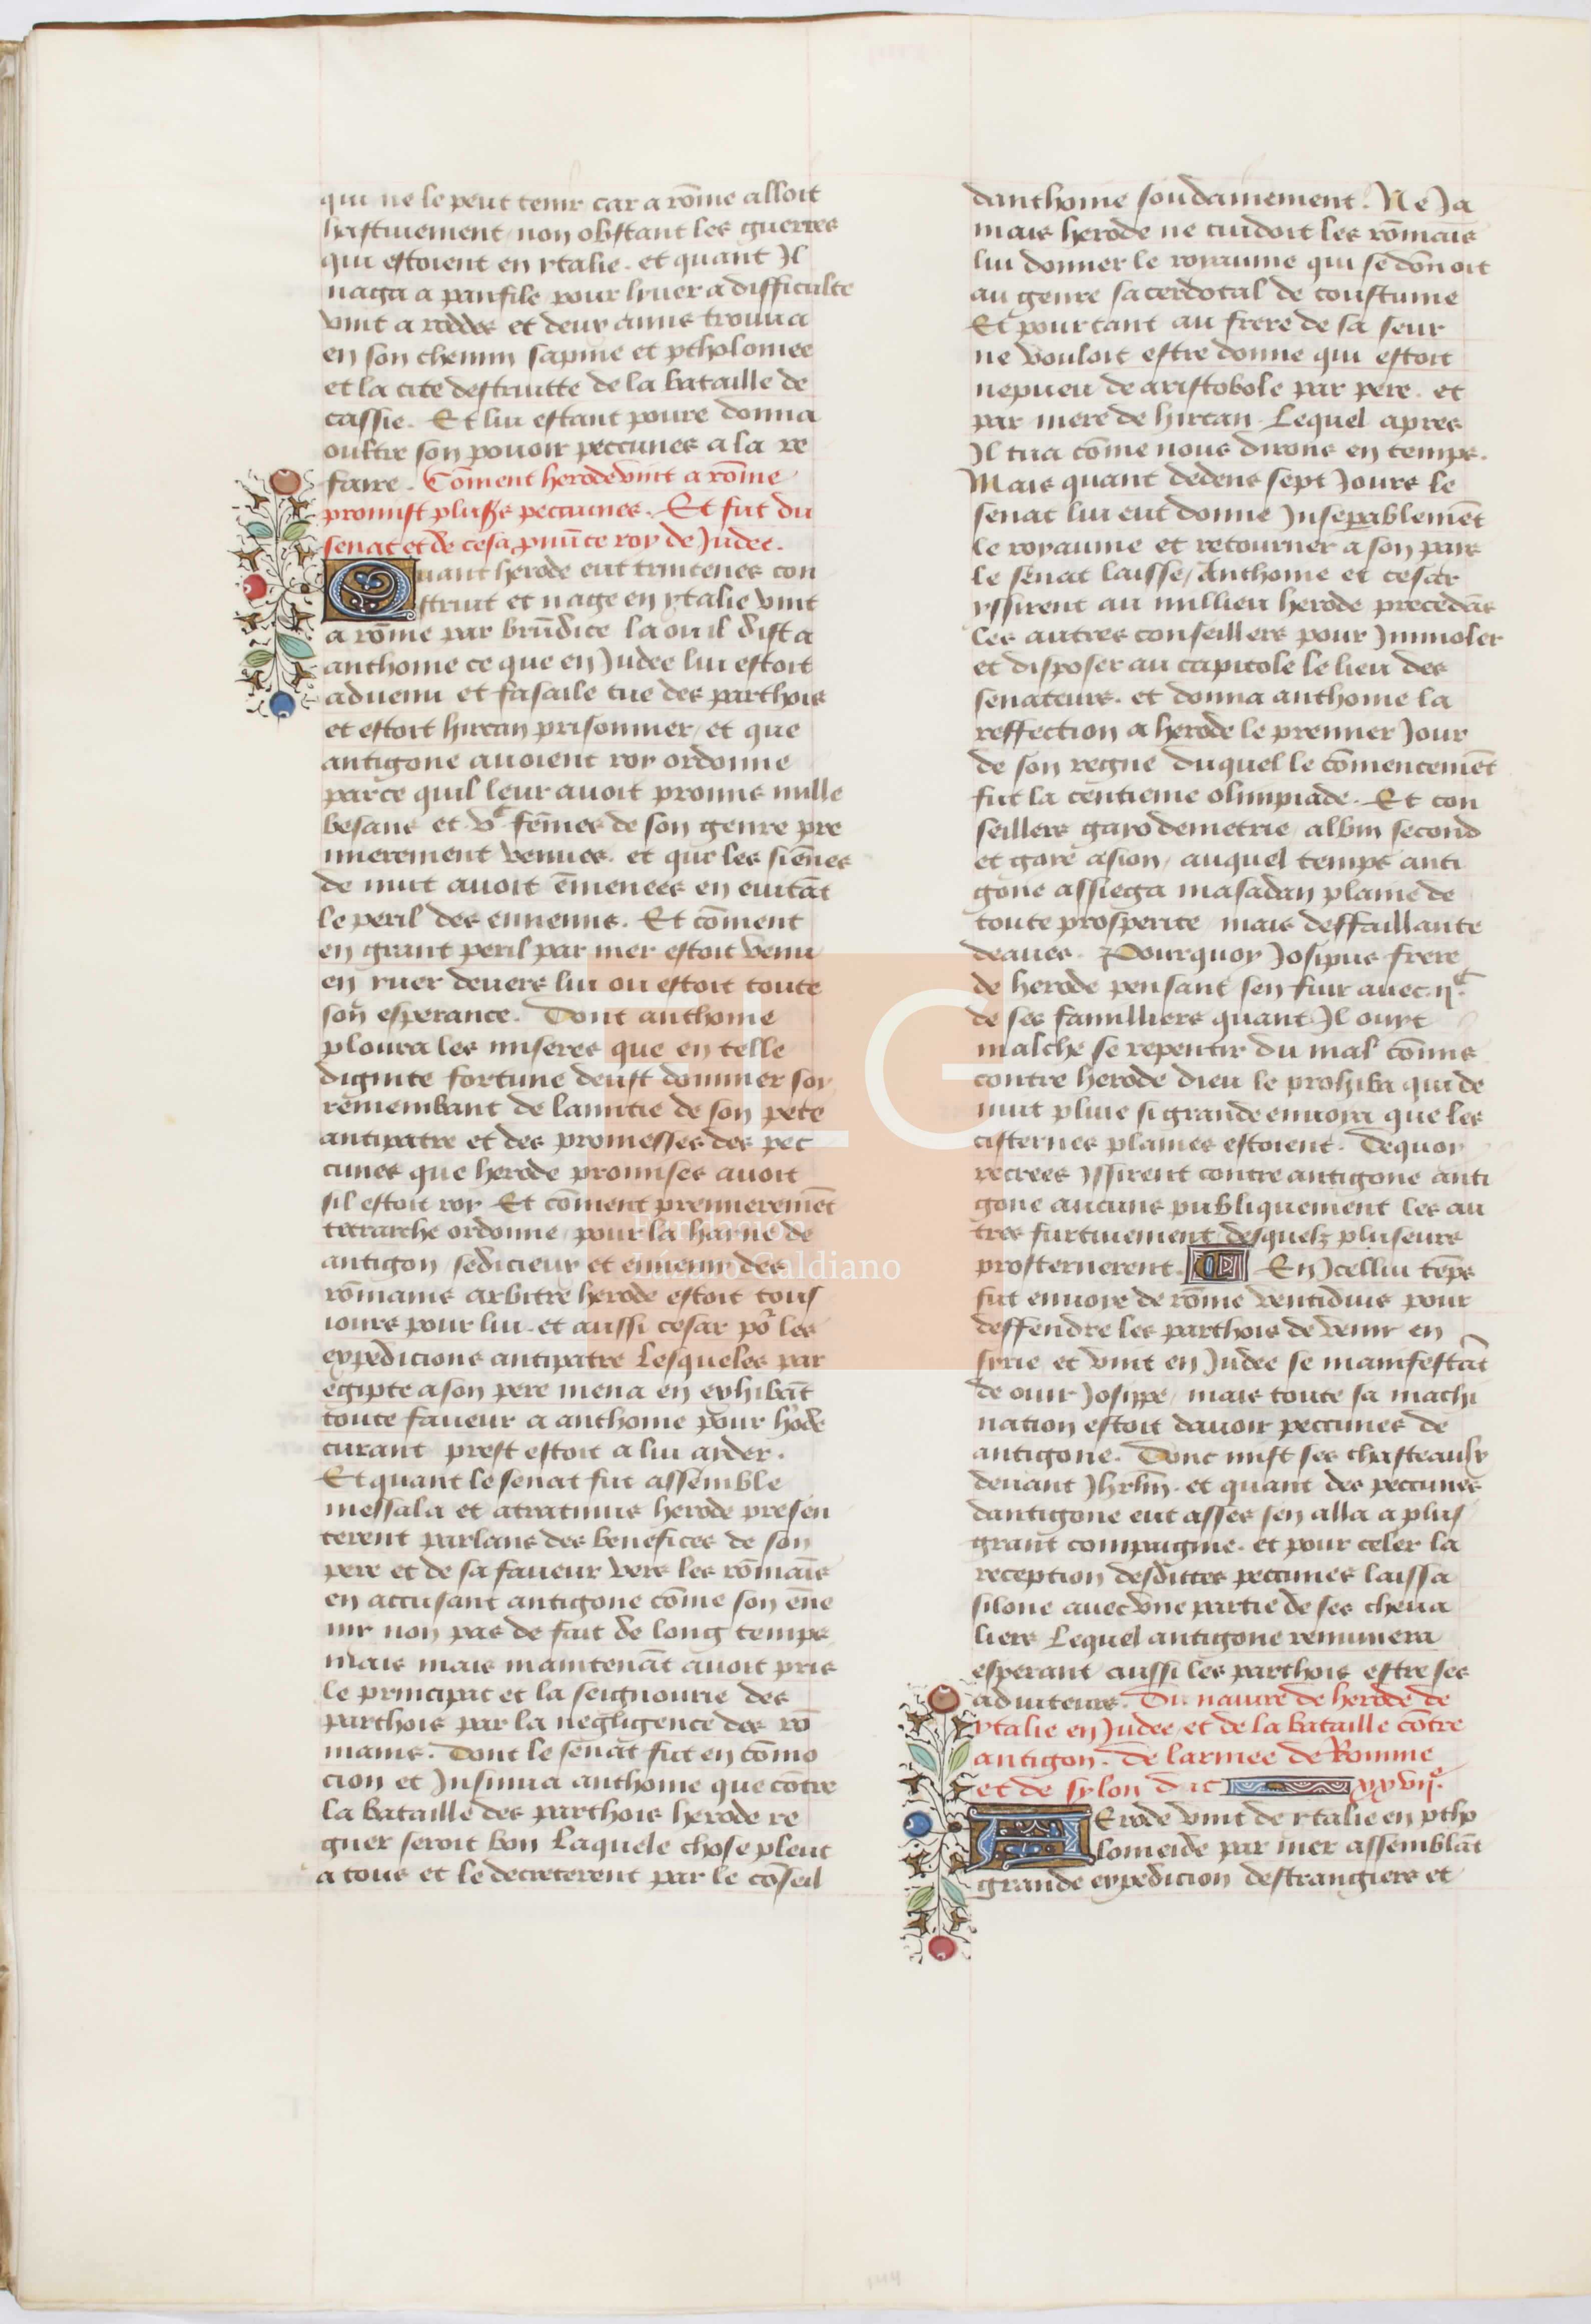 qui ne le peut tenir car a rōme alloit
hastiuement non obstant les guerres
qui estoient en ytalie. et quant Il
naga a panfile pour lyuer a difficulte
vint a roddes et deux amis trouua
en son chemin sapine et ptholomee
et la cite destruitte de la bataille de
cassie. Et lui estant poure donna
oultre son pouoir peccunes a la re
faire. Cōment herode vint a rōme
promist plus̄rs peccunes. Et fut du
senat et de cesa pnūce roy de Judee.
Quant herode eut trittenes con
struit et nage en ytalie vint
a rōme par brūdice la ou il dist a
anthoine ce que en Judee lui estoit
aduenu et fasaile tue des parthois
et estoit hircan prisonnier / et que
antigone auoient roy ordonne
parce quil leur auoit promis mille
besans et .vc. fēmes de son genre pre
mierement venues. et que les siēnes
de nuit auoit ēmenees en euitāt
le peril des ennemis. Et cōment
en grant peril par mer estoit venu
en yuer deuers lui ou estoit toute
son esperance. Dont anthoine
ploura les miseres que en telle
dignite fortune deust dominer soy
remembant de lamitie de son pere
antipatre et des promesses des pec
cunes que herode promises auoit
sil estoit roy Et cōment premieremēt
tetrarche ordonne / pour la hayne de
antigon / sedicieux et ennemi des
rōmains arbitre herode estoit tous
iours pour lui. et aussi cesar po᷑ les
expedicions antipatre Lesqueles par
egipte a son pere mena en exhibāt
toute faueur a anthoine pour h'ode
curant prest estoit a lui aider.
Et quant le senat fut assemble
messala et atratinus herode presen
terent parlans des benefices de son
pere et de sa faueur vers les rōmaīs
en accusant antigone cōme son ēne
my non pas de fait de long temps
mais mais maintenāt auoit pris
le principat et la seignourie des
parthois par la negligence des rō
mains. Dont le senat fut en cōmo
cion et Insinua anthoine que cōtre
la bataille des parthois herode re
gner seroit bon Laquele chose pleut
a tous et le decreterent par le cōseil
danthoine soudainement. Ne Ja
mais herode ne cuidoit les rōmaīs
lui donner le royaume qui se dōnoit
au genre sacerdotal de coustume
Et pourtant au frere de sa seur
ne vouloit estre donne qui estoit
nepueu de aristobole par pere. et
par mere de hircan. Lequel apres
Il tua cōme nous dirons en temps.
Mais quant dedens sept Jours le
senat lui eut donne Insepablemēt
le royaume et retourner a son pais
le senat laisse / Anthoine et cesar
yssirent au millieu herode precedās
les autres conseillers pour Immoler
et disposer au capitole le lieu des
senateurs. et donna anthoine la
reffection a herode le premier Jour
de son regne duquel le cōmencemēt
fut la centieme olimpiade. Et con
seillers gayo demetrie / albin second
et gare asion / auquel temps anti
gone assiega masadan plaine de
toute prosperite / mais deffaillante
deaues. Pourquoy Josipus frere
de herode pensant sen fuir auec .iic.
de ses familliers quant Il ouyt
malche se repentir du mal cōmis
contre herode dieu le prohiba qui de
nuit pluie si grande enuoya que les
cisternes plaines estoient. De quoy
recrees yssirent contre antigone anti
gone aucuns publiquement les au
tres furtiuement / desquelz pluseurs
prosternerent. En Jcellui tēps
fut enuoye de rōme ventidius pour
deffendre les parthois de venir en
syrie et vint en Judee se manifestāt
de ouir Josippe / mais toute sa machi
nation estoit dauoir peccunes de
antigone. Donc mist ses chasteaulx
deuant Jhrlm̄. et quant des peccunes
dantigone eut asses sen alla a plus
grant compaignie. et pour celer la
reception desdittes peccunes laissa
silone auec vne partie de ses cheua
liers Lequel antigone remunera
esperant aussi les parthois estre ses
aduiteurs. Du nauire de herode de
ytalie en Judee / et de la bataille cōtre
antigon. de larmee de Romme
et de sylon duc xxviie.
Herode vint de ytalie en ptho
lomeide par mer assemblāt
grande expedicion destrangiers et
FLG
Fundación
Lázaro Galdiano